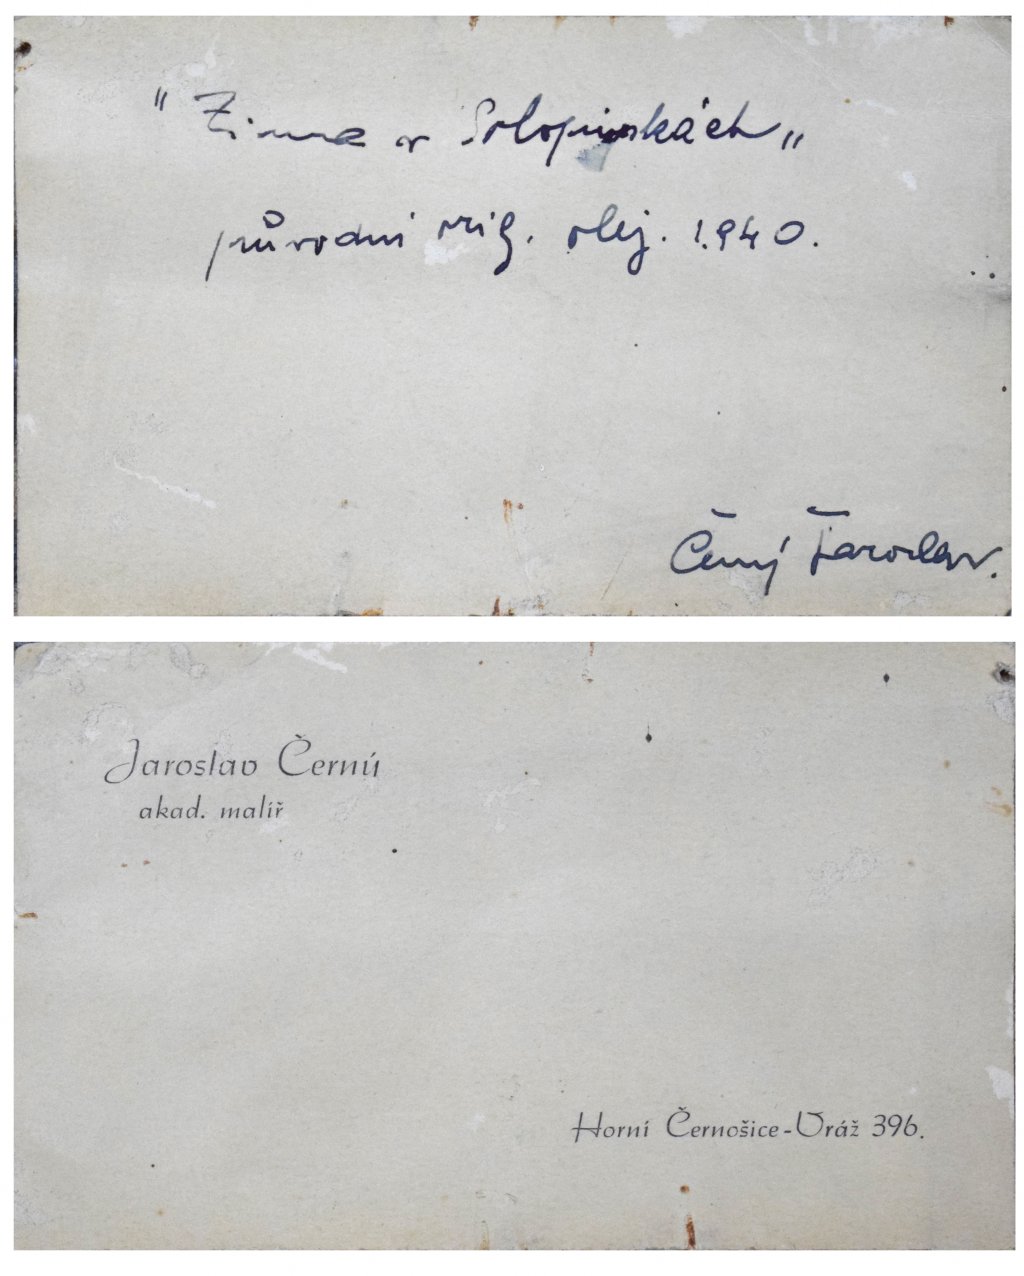 " Zima v Solopyskách "
původní orig. olej. 1940.
Černý Jaroslav.
Jaroslav Černý
akad. malíř
Horní Černošice-Vráž 396.